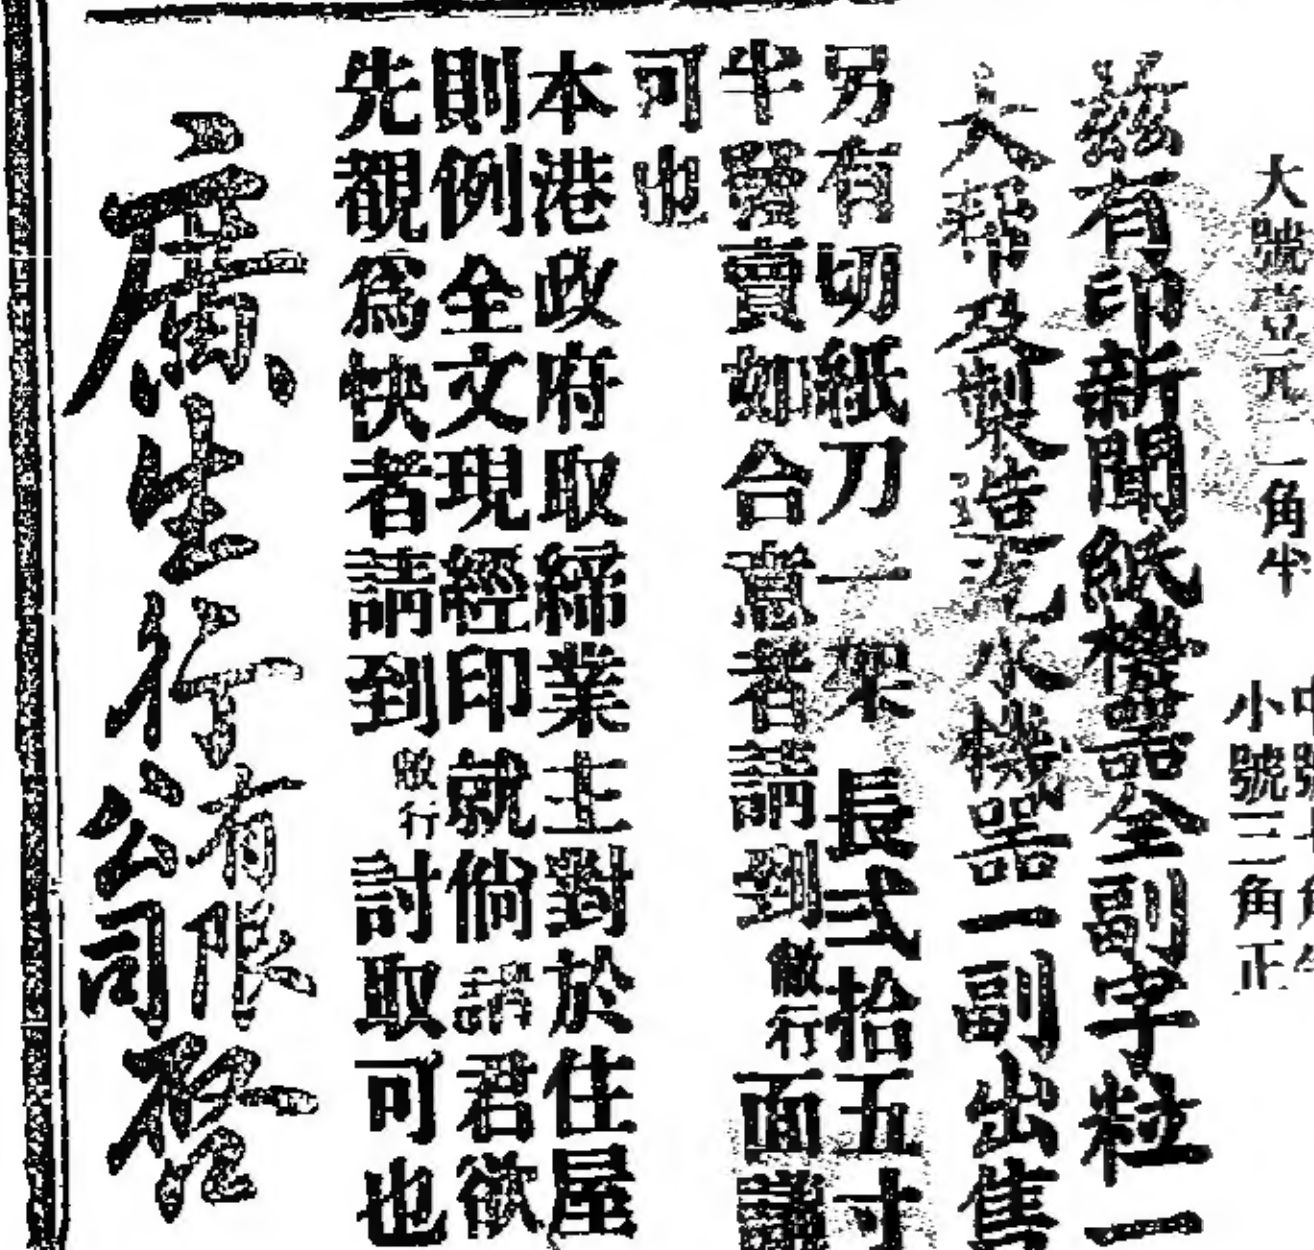 大號壹元二角半
小號三角正
茲有印新聞紙機器全副字粒一
大幫及製造汽水機器一副出售
另有切紙刀一架 長弍拾五寸
半發賣如合意者請到敝行面議
可也
本港政府取締業主對於住屋
則例全文現經印就倘諸君欲
先覩爲快者請到敝行討取可也
廣生行有限公司啓